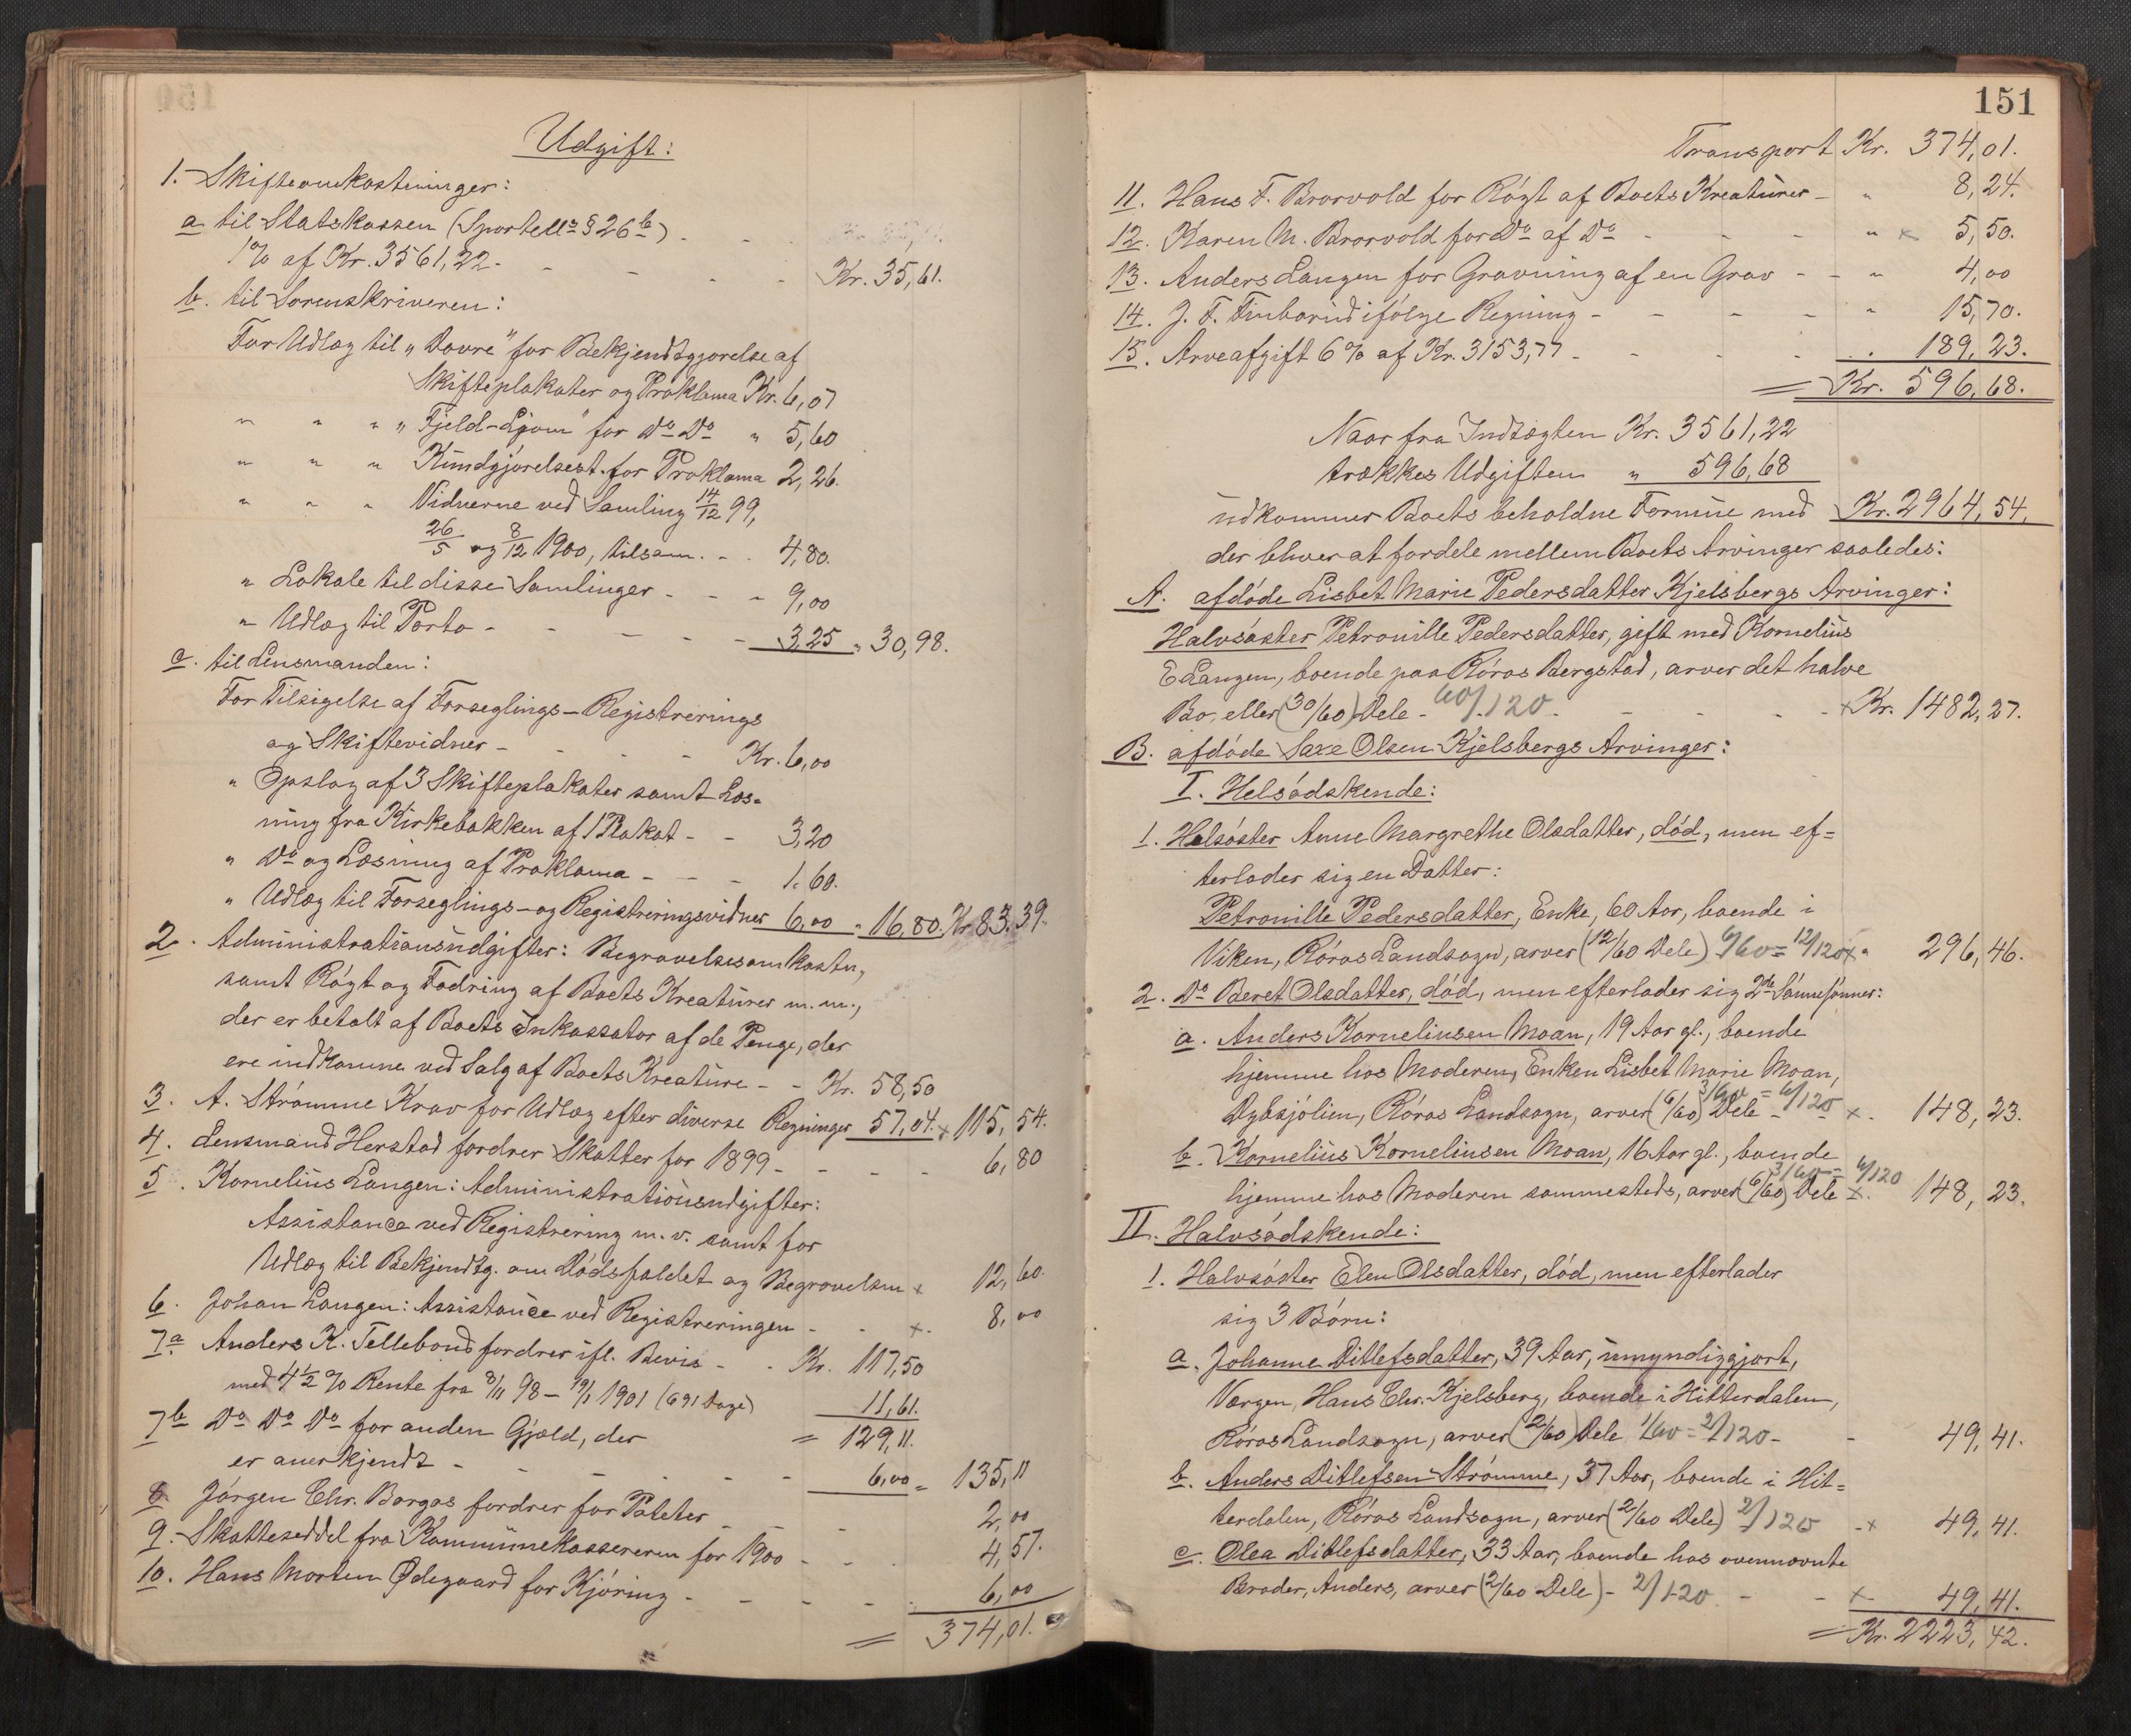 Udgift:
1. Skifteomkostninger:
a til Statskassen (Sportell. § 26 b)
1% af Kr. 3561,22 - - - - Kr. 35,61.
b. til Sorenskriveren:
For Udlæg til „Dovre" for Bekjendtgjørelse af
Skifteplakater og Proklama Kr. 6,07
" " " „Fjeld-Ljom" for Do Do " 5,60
" " " Kundgjørelsest. for Proklama 2,26.
" " " Vidnerne ved Samling 14/12 99,
26/5 og 8/12 1900, tilsam. - - 4,80.
" Lokale til disse Samlinger - - - 9,00
" Udlæg til Porto - - - - - 3,25 " 30,98.
c. til Lensmanden:
For Tilsigelse af Forseglings- Registrerings
og Skiftevidner - - - - Kr. 6,00
" Opslag af 3 Skifteplakater samt Læs-
ning fra Kirkebakken af 1 Plakat - - 3,20
" Do og Læsning af Proklama - - - 1,60.
" Udlæg til Forseglings- og Registreringsvidner 6,00 " 16,80. Kr. 83,39.
2. Administrationsudgifter: Begravelsesomkostn,
samt Røgt og Fodring af Boets Kreaturer m. m.,
der er betalt af Boets Inkassator af de Penge, der
ere indkomne ved Salg af Boets Kreature - - Kr. 58,50
3. A. Strømme Krav for Udlæg efter diverse Regninger 57,04. x 115,54.
4. Lensmand Herstad fordrer Skatter for 1899 - - - - 6,80
5. Kornelius Langen: Administrationsudgifter:
Assistance ved Registrering m. v. samt for
Udlæg til Bekjendtg. om Dødsfaldet og Begravelsen x 12,60.
6. Johan Langen: Assistance ved Registreringen - - x. 8,00
7a Anders K. Tellebond fordrer ifl. Bevis - - Kr. 117,50
med 4 1/2 % Rente fra 8/11 98 - 19/1 1901 (691 Dage) 11,61.
= 129,11.
7b Do Do Do for anden Gjæld, der
er anerkjendt - - - - - - 6,00 = 135,11
8. Jørgen Chr. Borgos fordrer for Poteter - - - 2,00
9. Skatteseddel fra Kommunekassereren for 1900 - - - 4,57.
10. Hans Morten Ødegaard for Kjøring - - - - - 6,00
= 374,01.
151
Transport Kr. 374,01.
11. Hans F. Brorvold for Røgt af Boets Kreaturer - " 8,24.
12. Karen M. Brorvold for Do af Do - - - - " x 5,50.
13. Anders Langen for Gravning af en Grav - - " 4,00
14. J. F. Finborud ifølge Regning - - - - - " 15,70.
15. Arveafgift 6% af Kr. 3153,77 - - - - - . . 189,23.
= Kr. 596,68.
Naar fra Indtægten Kr. 3561,22
trækkes Udgiften " 596,68
udkommer Boets beholdne Formue med Kr. 2964,54.
der bliver at fordele mellem Boets Arvinger saaledes:
A. afdøde Lisbet Marie Pedersdatter Kjelsbergs Arvinger:
Halvsøster Petronille Pedersdatter, gift med Kornelius
E Langen, boende paa Røros Bergstad, arver det halve
Bo, eller (30/60) Dele - 60/120 - - - - - x Kr. 1482,27.
B. afdøde Saxe Olsen Kjelsbergs Arvinger:
I. Helsødskende:
1. Helsøster Anne Margrethe Olsdatter, død, men ef=
terlader sig en Datter:
Petronille Pedersdatter, Enke, 60 Aar, boende i
Viken, Røros Landsogn, arver (12/60 Dele) 6/60 = 12/120 x " 296,46.
2. Do Beret Olsdatter, død, men efterlader sig 2de Sønnesønner:
a. Anders Korneliusen Moan, 19 Aar gl., boende
hjemme hos Moderen, Enken Lisbet Marie Moan,
Dybsjølien, Røros Landsogn, arver (6/60) Dele 3/60 = 6/120 x. 148,23.
b. Kornelius Korneliusen Moan, 16 Aar gl., boende
hjemme hos Moderen sammesteds, arver (6/60) Dele 3/60 = 6/120 x. 148,23.
II. Halvsødskende:
1. Halvsøster Elen Olsdatter, død, men efterlader
sig 3 Børn:
a. Johanne Ditlefsdatter, 39 Aar, umyndiggjort,
Værgen, Hans Chr. Kjelsberg, boende i Hitterdalen,
Røros Landsogn, arver (2/60) Dele 1/60 = 2/120 - - 49,41.
b. Anders Ditlefsen Strømme, 37 Aar, boende i Hit=
terdalen, Røros Landsogn, arver (2/60 Dele) 2/120 - x 49,41.
c. Olea Ditlefsdatter, 33 Aar, boende hos ovennævnte
Broder, Anders, arver (2/60 Dele) - 2/120 - - x 49,41.
= Kr. 2223,42.